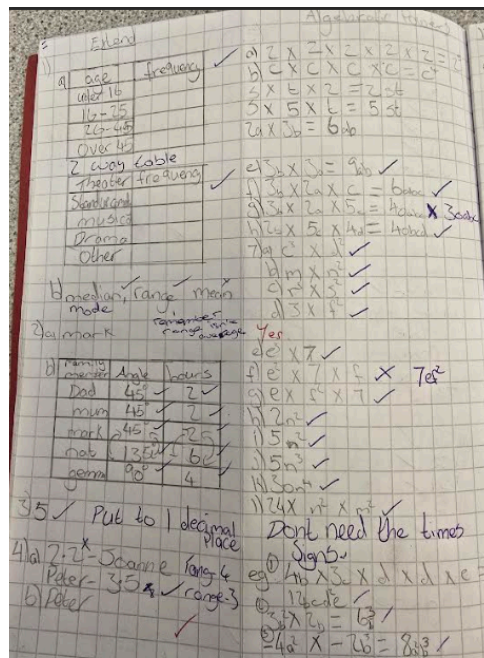 Extend
1)
a) age frequency ✓
under 16
16-25
26-45
Over 45
2 way table
Theater frequency ✓
Standup and
musical
Drama
Other
b) median, range mean
mode
remember
range isn't
average
2) a) mark
b) family member Angle hours
Dad 45° ✓ 2 ✓
mum 45° ✓ 2 ✓
mark 45°
nat 135°
gemma 90° 4
3) 5 ✓ Put to 1 decimal
place
4) a) 2.2 x - Joanne rang 4
Peter - 3.5 ✓ range-3
b) Peter
Algebraic
a) 2 x 2 x 2 x 2 x 2 =
b) c x c x c x c = c⁴
s x t x 2 = 2st
s x 5 x t = 5st
2a x 3b = 6ab
e) 3b x 3a = 9ab ✓
f) 3b x 2a x c = 6abc ✓
g) 3b x 2a x 5c = x 30abc
h) 2a x 5c x 4d = 40bcd ✓
7) a) c² x d² ✓
b) m x n² ✓
c) r² x s² ✓
d) 3 x f² ✓
Yes
e) e² x 7 ✓
f) e x 7 x f x 7ef²
g) e x f² x 7 ✓
h) 2n² ✓
i) 5n² ✓
j) 5n³ ✓
k) 30n⁴ ✓
l) 24 x n² x m² ✓
Dont need the times
Signs.
eg ① 4b x 3c x d x d x e =
12bcd²e ✓
3b² x 2b = 6b³ ✓
-4a² x -2b³ = 8a²b³ ✓